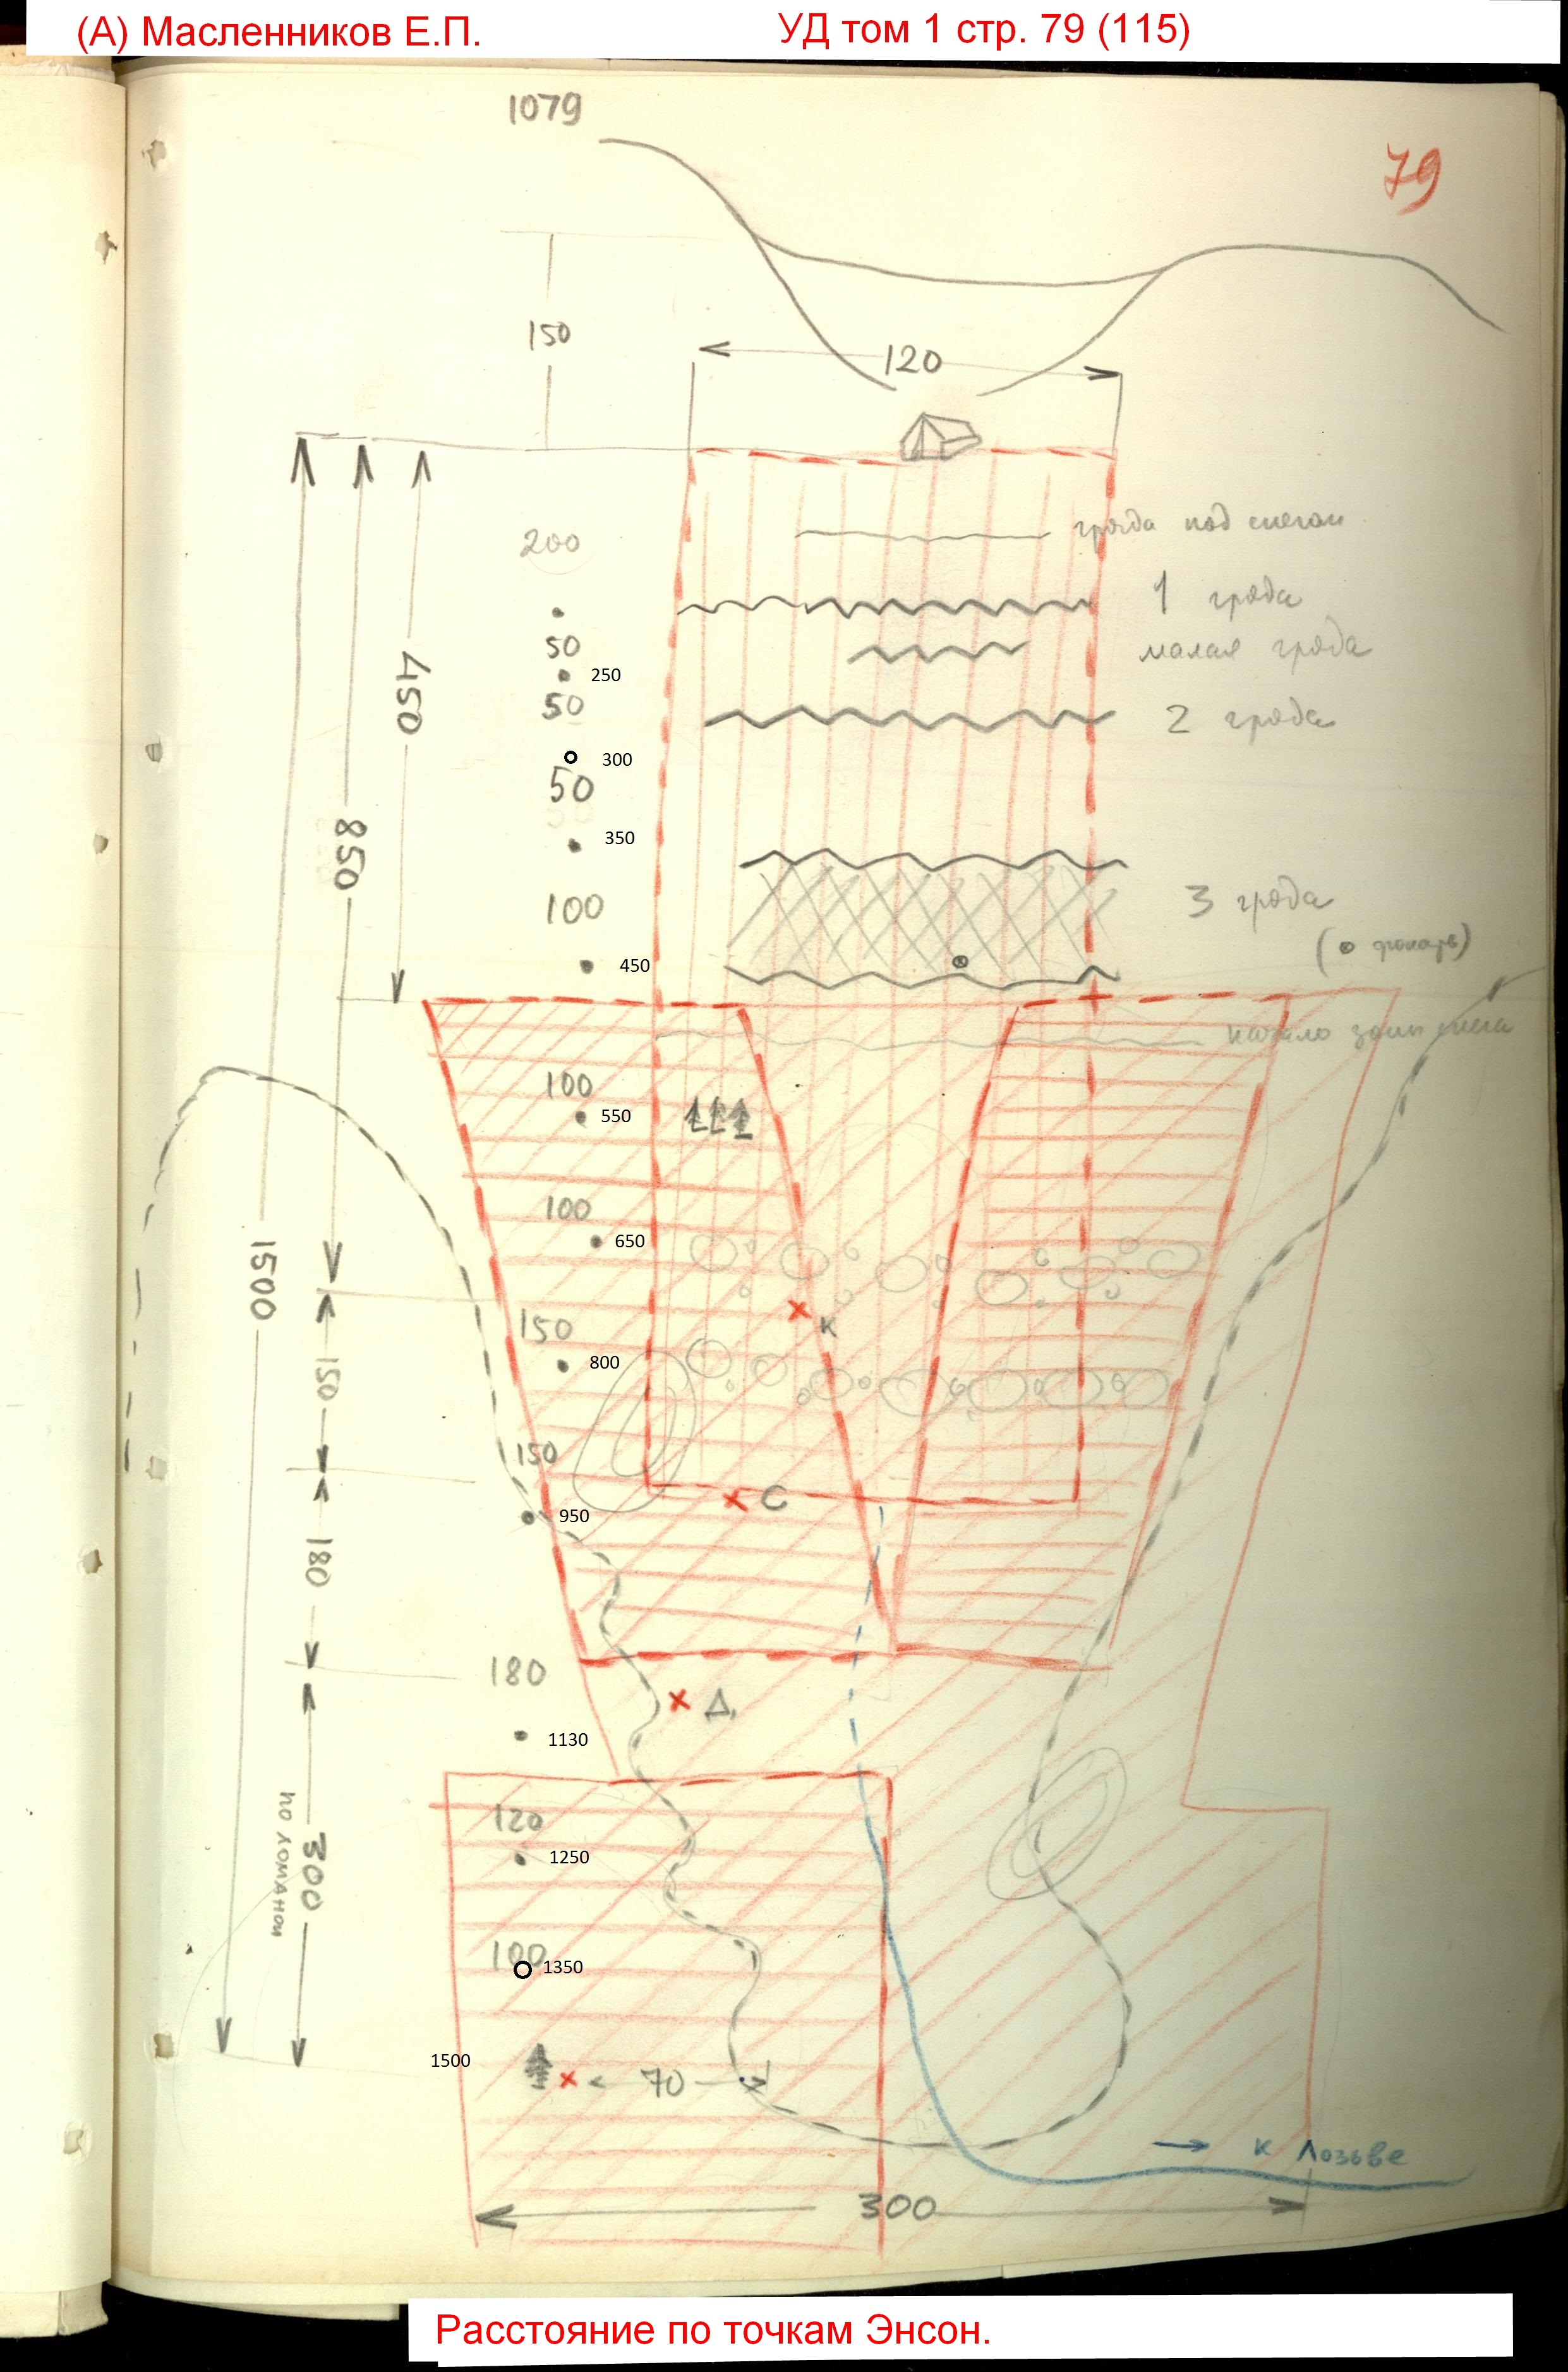 (А) Масленников Е.П.
УД том 1 стр. 79 (115)
1079
79
150
120
200
гряда под снегом
1 гряда
50
малая гряда
250
50
2 гряда
450
300
50
350
850
100
3 гряда
(⊙ фонарь)
450
начало зоны снега
100
550
100
650
1500
150
К
800
150
150
С
950
180
180
Д
1130
120
1250
300
по ломаной
100
1350
1500
70
к Лозьве
300
Расстояние по точкам Энсон.